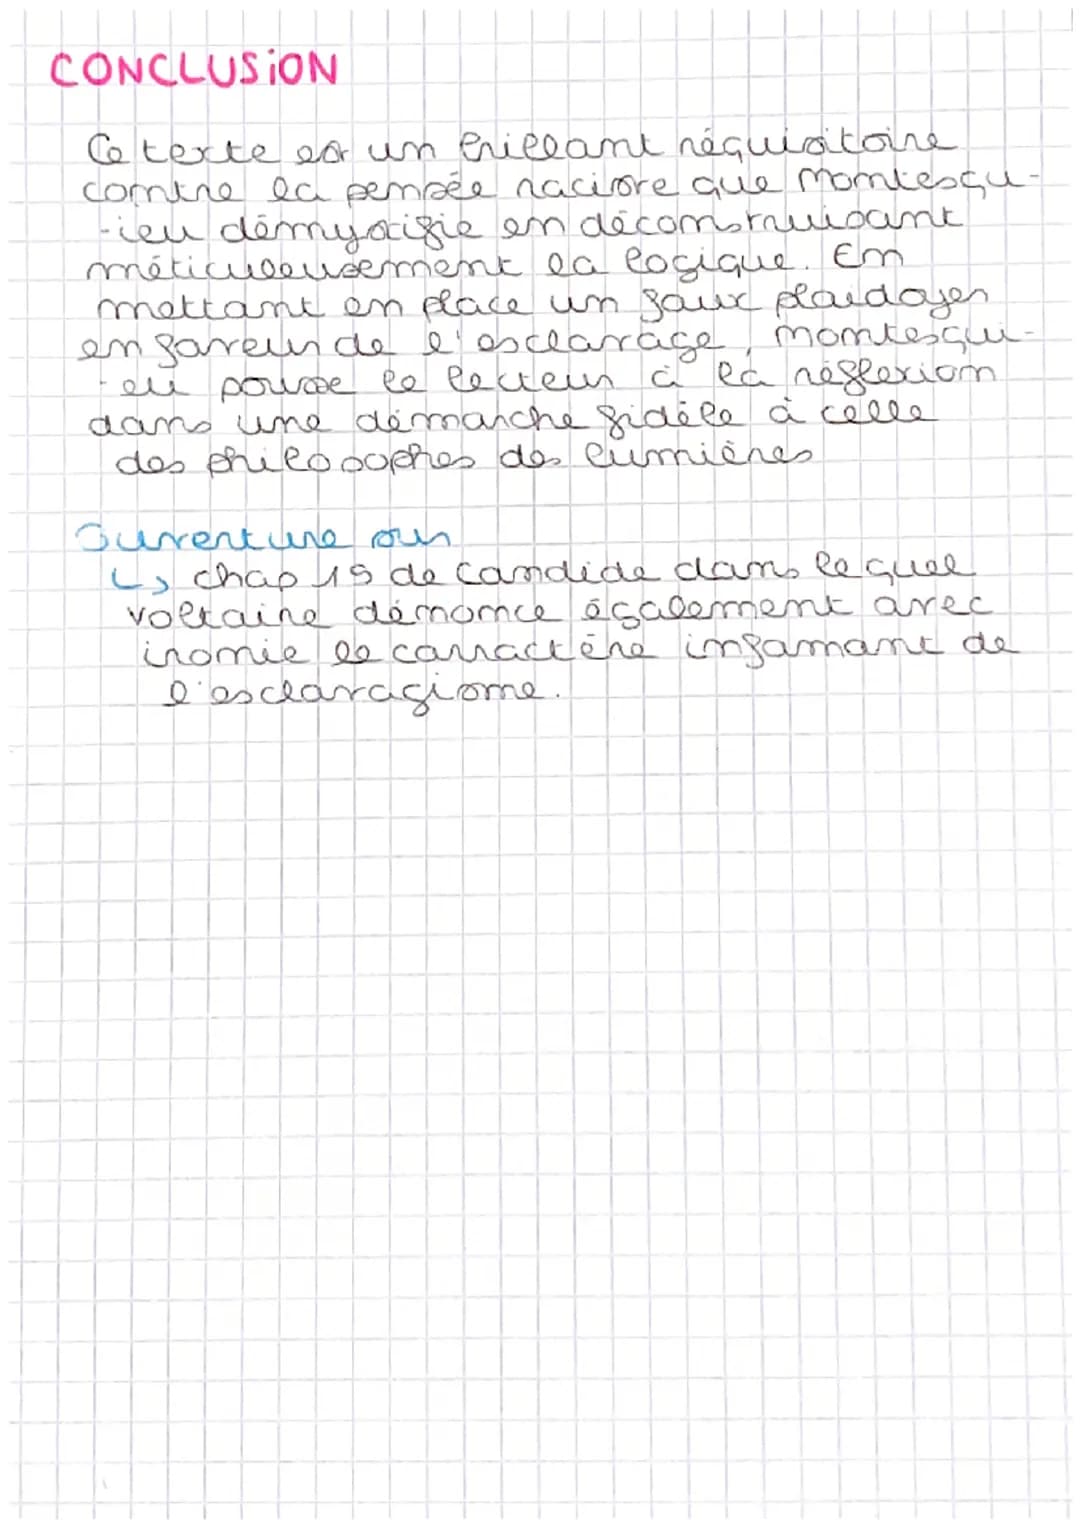 CONCLUSION
Ce texte est un brillant réquisitoire
contre la pensée raciste que Montesqu-
-ieu démystifie en déconstruisant
méticuleusement la logique. En
mettant en place un faux plaidoyer
en faveur de l'esclavage, Montesqui-
-eu pousse le lecteur à la réflexion
dans une démarche fidèle à celle
des philosophes des lumières
Ouverture sur
↳ chap 19 de Candide dans lequel
voltaire dénonce également avec
ironie le carractère infamant de
l'esclavagisme.